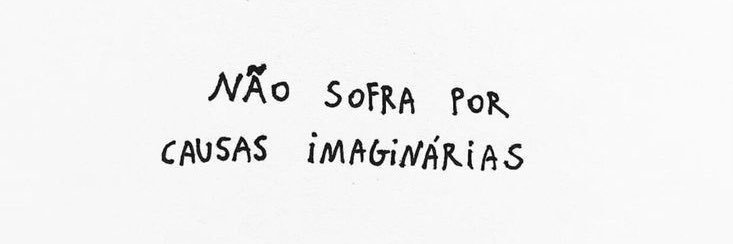 NÃO SOFRA POR
CAUSAS iMAGiNÁRiAS